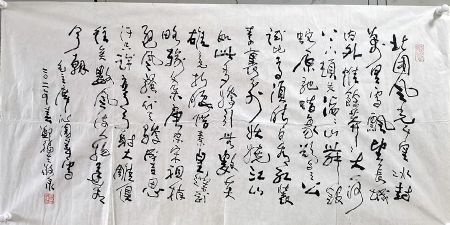 北国风光千里冰封
万里雪飘望长城
内外惟馀莽莽大河
上下顿失滔滔山舞银
蛇原驰蜡象欲与天公
试比高须晴日看红装
素裹分外妖娆江山
如此多娇引无数英
雄竞折腰惜秦皇汉武
略输文采唐宗宋祖稍
逊风骚一代天骄成吉思
汗只识弯弓射大雕俱
往矣数风流人物还看
今朝
毛主席沁园春雪